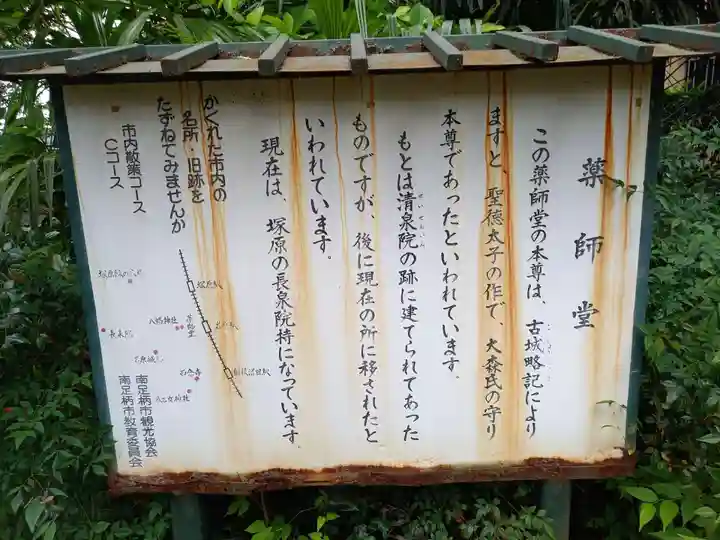 薬師堂
この薬師堂の本尊は、古城略記により
ますと、聖徳太子の作で、大森氏の守り
本尊であったといわれています。
もとは清泉院の跡に建てられてあった
せいせんいん
ものですが、後に現在の所に移されたと
いわれています。
現在は、塚原の長泉院持になっています。
かくれた市内の
名所・旧跡を
たずねてみませんか
市内散策コース
Cコース
塚原駅
八幡神社
薬師堂
長泉院
弘西寺
八乙女神社
南足柄市観光協会
南足柄市教育委員会